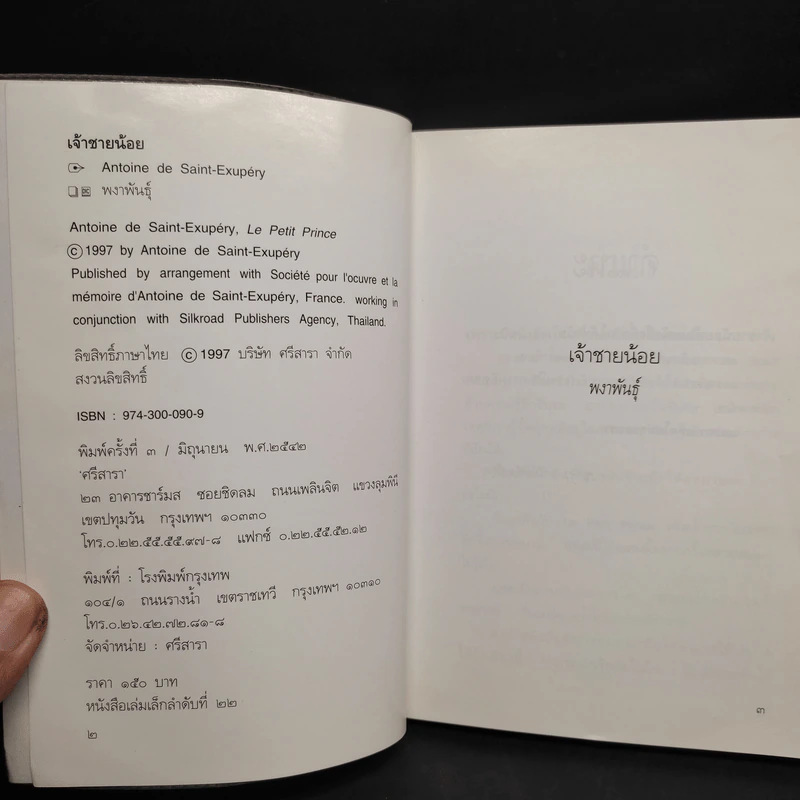 เจ้าชายน้อย
Antoine de Saint-Exupéry
พงาพันธุ์
Antoine de Saint-Exupéry, Le Petit Prince
© 1997 by Antoine de Saint-Exupéry
Published by arrangement with Société pour l'ocuvre et la
mémoire d'Antoine de Saint-Exupéry, France. working in
conjunction with Silkroad Publishers Agency, Thailand.
ลิขสิทธิ์ภาษาไทย © 1997 บริษัท ศรีสารา จำกัด
สงวนลิขสิทธิ์
ISBN : 974-300-090-9
พิมพ์ครั้งที่ ๓ / มิถุนายน พ.ศ.๒๕๔๒
'ศรีสารา'
๒๓ อาคารชาร์มส ซอยชิดลม ถนนเพลินจิต แขวงลุมพินี
เขตปทุมวัน กรุงเทพฯ ๑๐๓๓๐
โทร.๐.๒๒.๕๕.๕๕.๙๗-๘ แฟกซ์ ๐.๒๒.๕๕.๕๒.๑๒
พิมพ์ที่ : โรงพิมพ์กรุงเทพ
๑๐๔/๑ ถนนรางน้ำ เขตราชเทวี กรุงเทพฯ ๑๐๓๑๐
โทร.๐.๒๖.๔๒.๗๒.๘๑-๘
จัดจำหน่าย : ศรีสารา
ราคา ๑๕๐ บาท
หนังสือเล่มเล็กลำดับที่ ๒๒
๒
เจ้าชายน้อย
พงาพันธุ์
๓